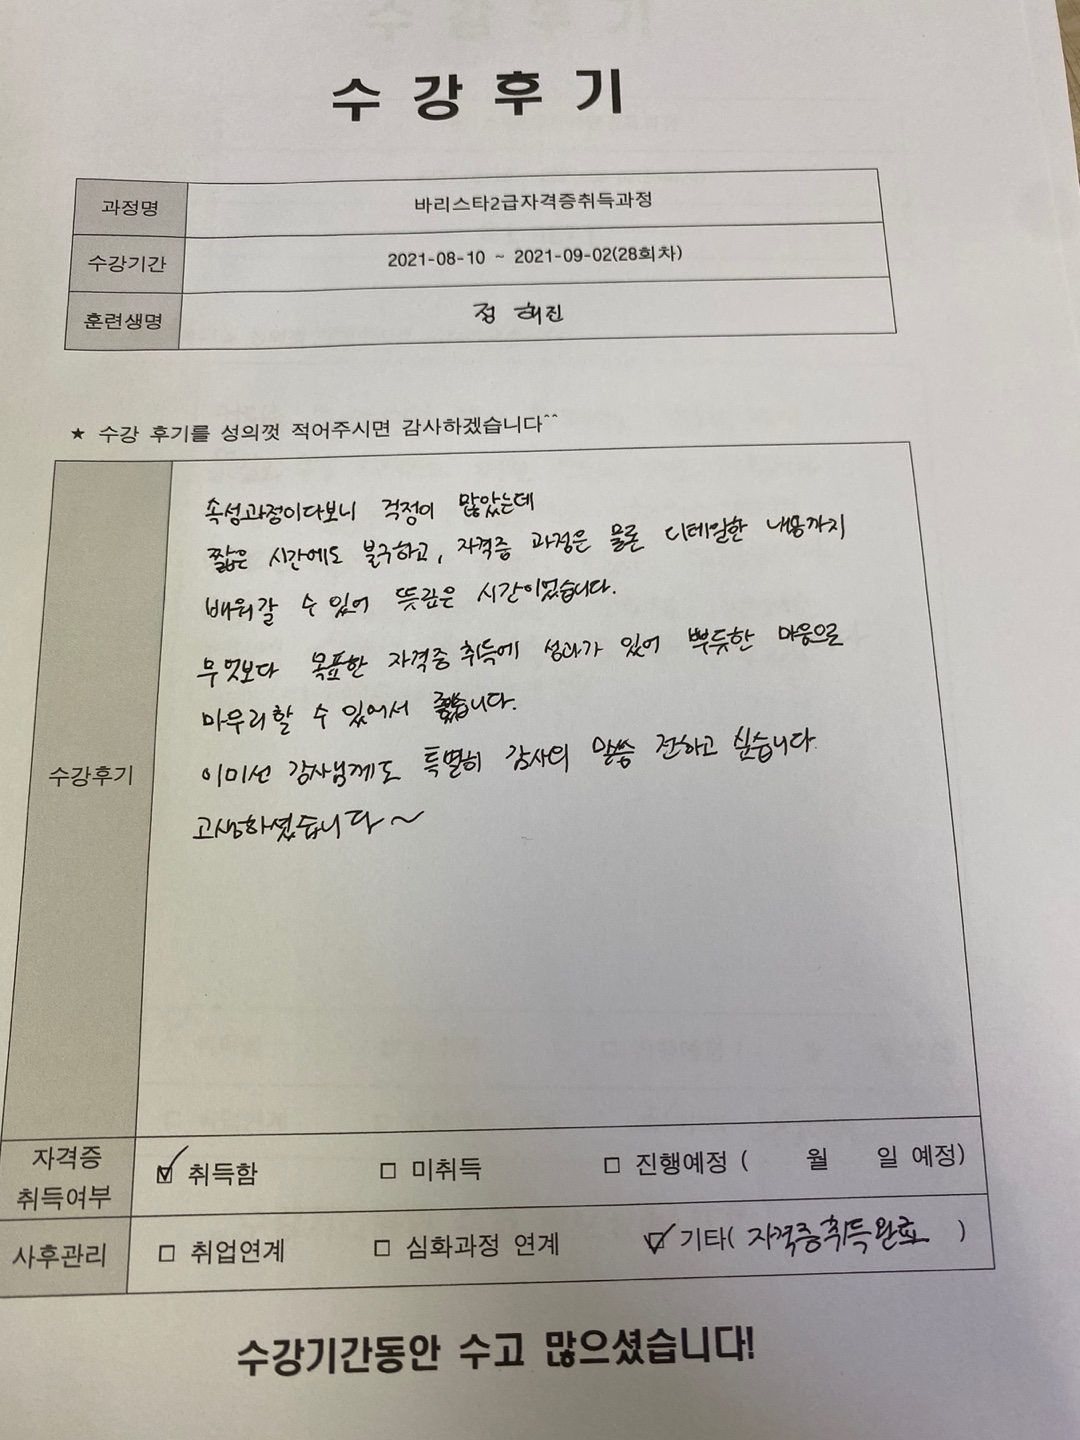 수강후기
과정명 바리스타2급자격증취득과정
수강기간 2021-08-10 ~ 2021-09-02(28회차)
훈련생명 정 혜진
★ 수강 후기를 성의껏 적어주시면 감사하겠습니다^^
수강후기
속성과정이다보니 걱정이 많았는데
짧은 시간에도 불구하고, 자격증 과정은 물론 디테일한 내용까지
배워갈 수 있어 뜻깊은 시간이었습니다.
무엇보다 목표한 자격증 취득에 성과가 있어 뿌듯한 마음으로
마무리할 수 있어서 좋았습니다.
이미선 강사님께도 특별히 감사의 말씀 전하고 싶습니다.
고생하셨습니다~
자격증
취득여부 ☑ 취득함 □ 미취득 □ 진행예정 ( 월 일 예정)
사후관리 □ 취업연계 □ 심화과정 연계 ☑ 기타( 자격증취득완료 )
수강기간동안 수고 많으셨습니다!